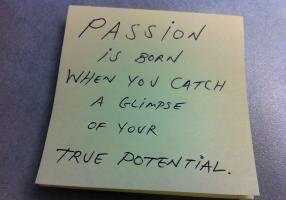 PASSION
IS BORN
WHEN YOU CATCH
A GLIMPSE
OF YOUR
TRUE POTENTIAL.